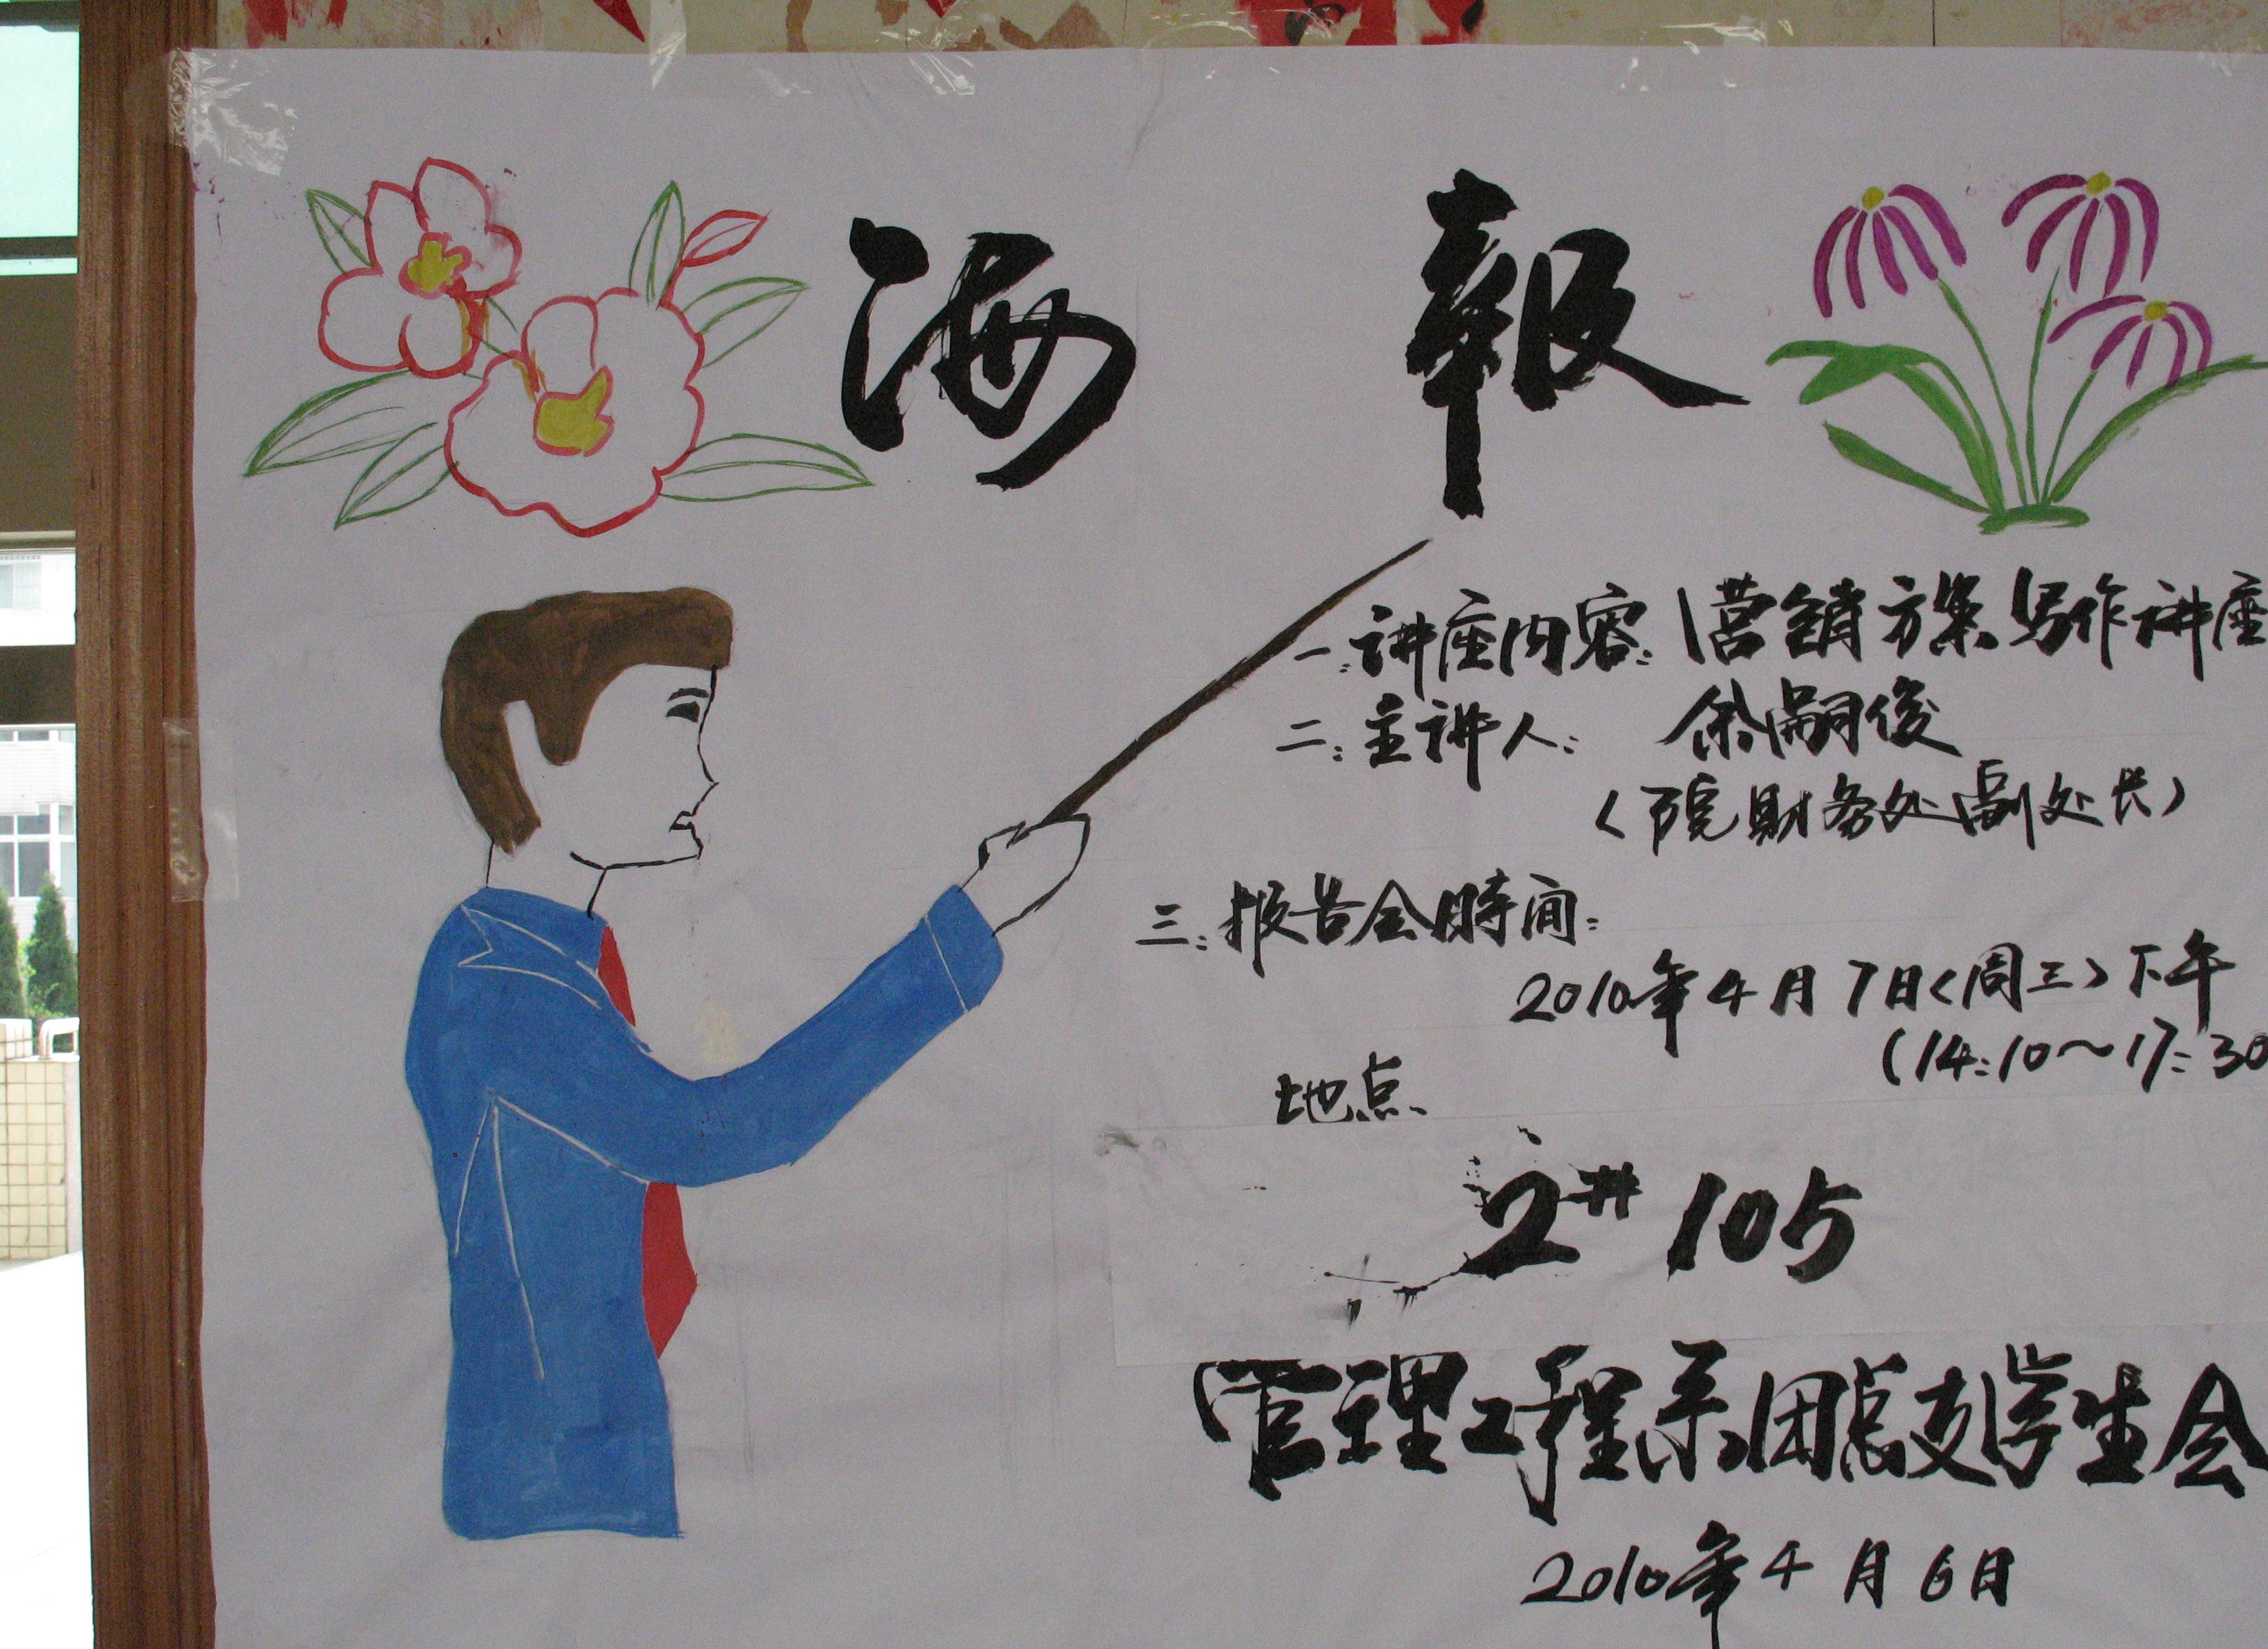 海 報
一:讲座内容:营销方案写作讲座
二:主讲人: 余嗣俊
(院財务处副处长)
三:报告会時间:
2010年4月7日(周三)下午
(14:10～17:30
地点
2# 105
管理工程系团总支学生会
2010年4月6日